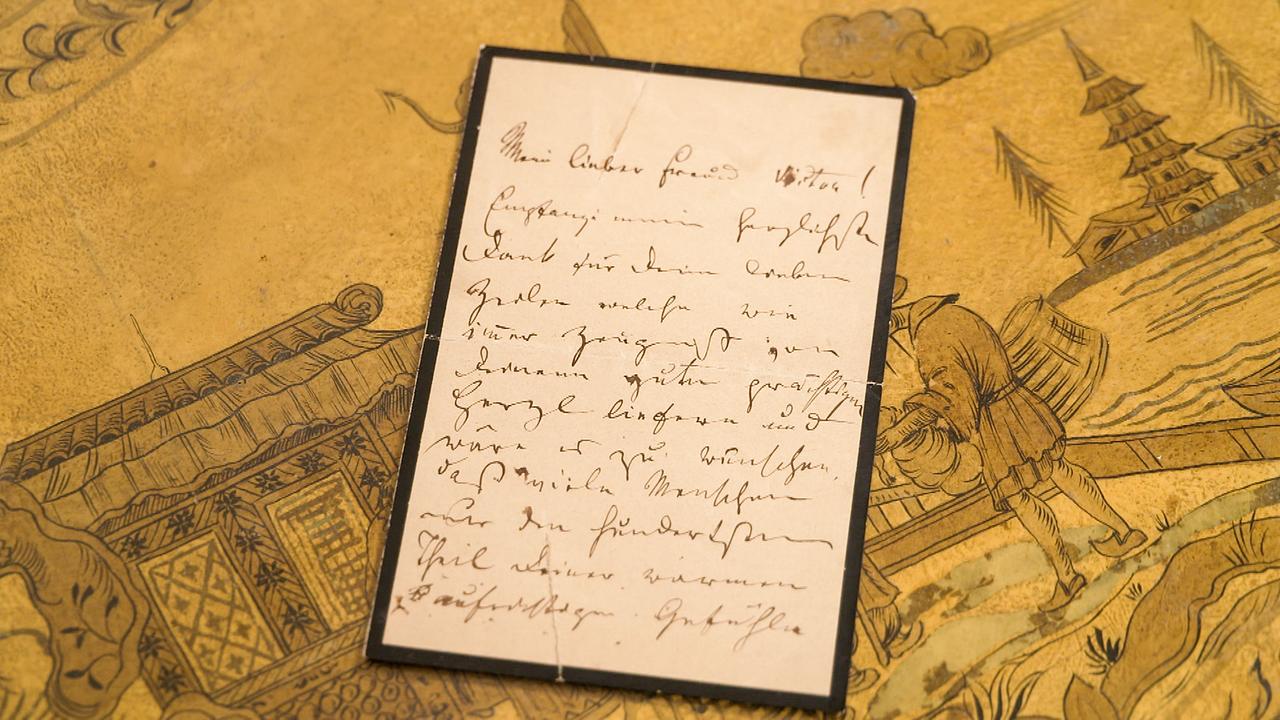 Mein lieber Freund Viktor!
Empfange meinen herzlichsten
Dank für Deine lieben
Zeilen welche wie
im̅er Zeugniß von
Deinem guten prächtigen
Herzl liefern und
wäre es zu wünschen,
daß viele Menschen
nur den hundertsten
Theil Deiner warmen
aufrichtigen Gefühle